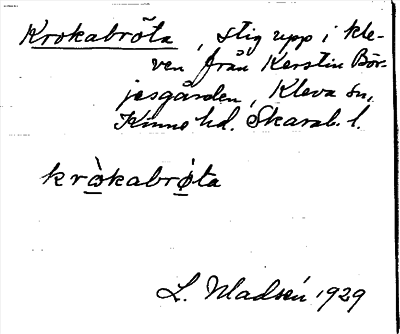 Krokabröta, stig upp i kle-
ven från Kerstin Bör-
jesgården, Kleva sn,
Kinne hd. Skarab. l.
kròkabrǿta
L. Madsén 1929